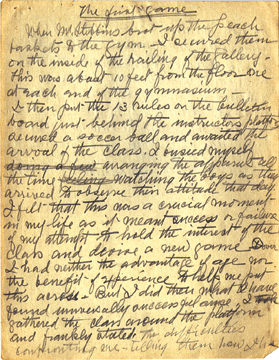 The first game
When Mr Stebbins brot up the peach
baskets to the gym - I secured them
on the inside of the railing of the gallery -
this was about 10 feet from the floor - one
at each end of the gymnasium -
I then put the 13 rules on the bulletin
board just behind the instructors platform
secured a soccer ball and awaited the
arrival of the class. I busied myself
arranging the apparatus all
the time watching the boys as they
arrived to observe their attitude that day
I felt that this was a crucial moment
in my life as it meant success or failure
of my attempt to hold the interest of the
class and devise a new game
I had neither the advantage of age nor
the benefit of experience to help me put
this across - But I did then what I have
found universally success
gathered the class around the platform
and frankly stated the difficulties
confronting me - telling them how I